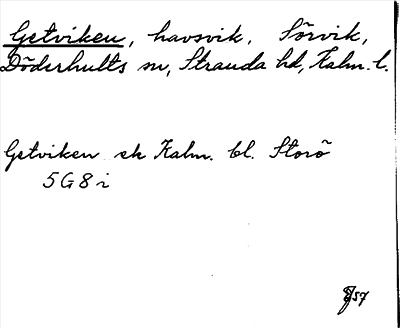 Getviken, havsvik, Sörvik,
Döderhults sn, Stranda hd, Kalm. l.
Getviken ek Kalm. bl. Storö
5G8i
57